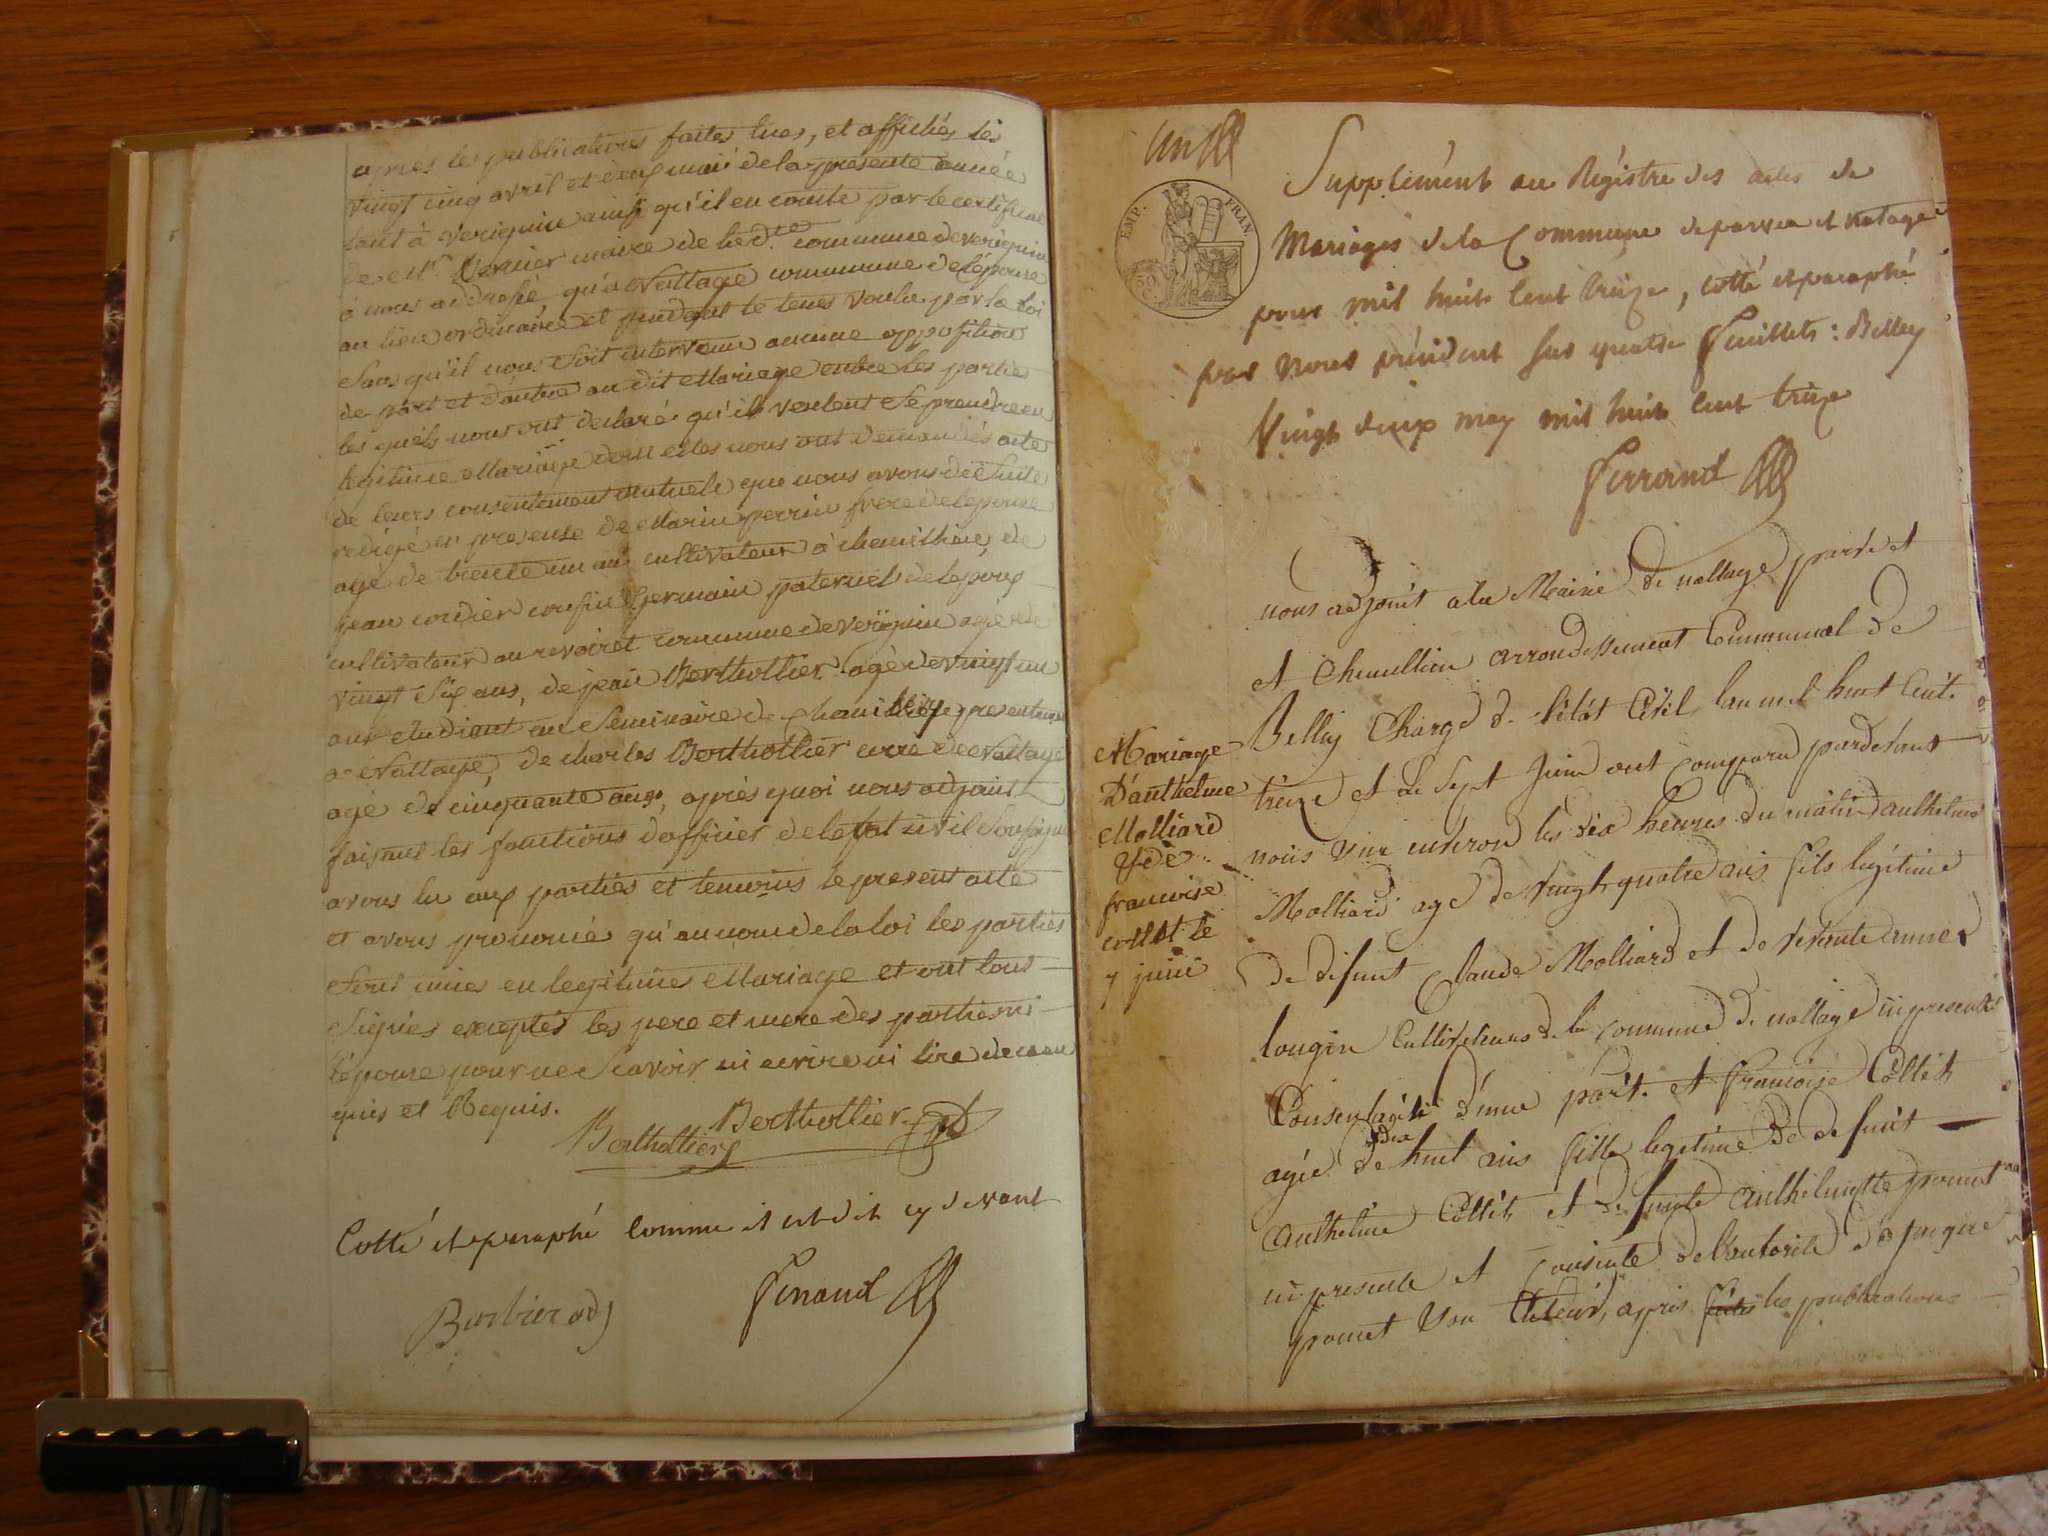 après les publications faites lues, et affichés les
vingt cinq avril et deux mai de la présente année
tant à verignin ainsi qu'il en conste par le certificat
de Mr. Vernier maire de la de. commune de verignin
à nous adressé qu'à Nattage commune de l'épouse
au lieu ordinaire et pendant le tems voulu par la loi
sans qu'il nous soit intervenu aucune opposition
de part et d'autre au dit Mariage entre les parties
les quels nous ont declaré qu'ils veulent se prendre en
legitime Mariage dont elles nous ont demandés acte
de leurs consentement mutuels que nous avons de suite
redigé en presense de Marin perrin frere de l'epouse
agé de trente un ans cultivateur à chemilliue, de
jean cordier cousin Germain paternel de lepoux
cultivateur au revoiret commune de verignin agé de
vingt six ans, de jean Berthollier agé de vingt un
ans étudiant au Seminaire de presentement
à Nattage, de charles Berthollier curé de Nattage
agé de cinquante ans, après quoi nous adjoint
faisant les fonctions d'officier de l'etat civil soussigné
avons lu aux parties et temoins le present acte
et avons prononcé qu'au nom de la loi les parties
sont unies en legitimes Mariage et ont tous
signés exceptés les pere et mere des parties ni
l'épouse pour ne scavoir ni ecrire ni lire de ce en
quis et Requis.
Berthollier Berthollier
Cotté et paraphé comme il est dit cy devant
Barbier adj Ferrand
un
EMP. FRAN.
Supplément au Régistre des actes de
Mariages de la Commune de parves et natage
pour mil huit cent treize, cotté et paraphé
par nous président sur quatre feuillets : Belley
Vingt deux may mil huit cent treize
Ferrand
nous adjoint a la Mairie de nattage parve et
et Chemillieu arrondissement Communal de
Belley Chargé de l'état Civil, l'an mil huit Cent
treize et le Sept Juin ont Comparu pardevant
nous vers environ les dix heures du matin d'anthelme
Molliard agé de vingt quatre ans fils légitime
de défunt Claude Molliard et de vivante anne
lougin Cultivateurs de la Commune de nattage ici presente
Consentante d'une part. et Francoise Collet
agée de dix huit ans fille legitime De defunt
anthelme Collet et de funte anthelmette pomet
ici presente et consente de l'autorité de
pomet son tuteur, apres les publications
Mariage
D'anthelme
Molliard
& de
francoise
collet le
7 juin